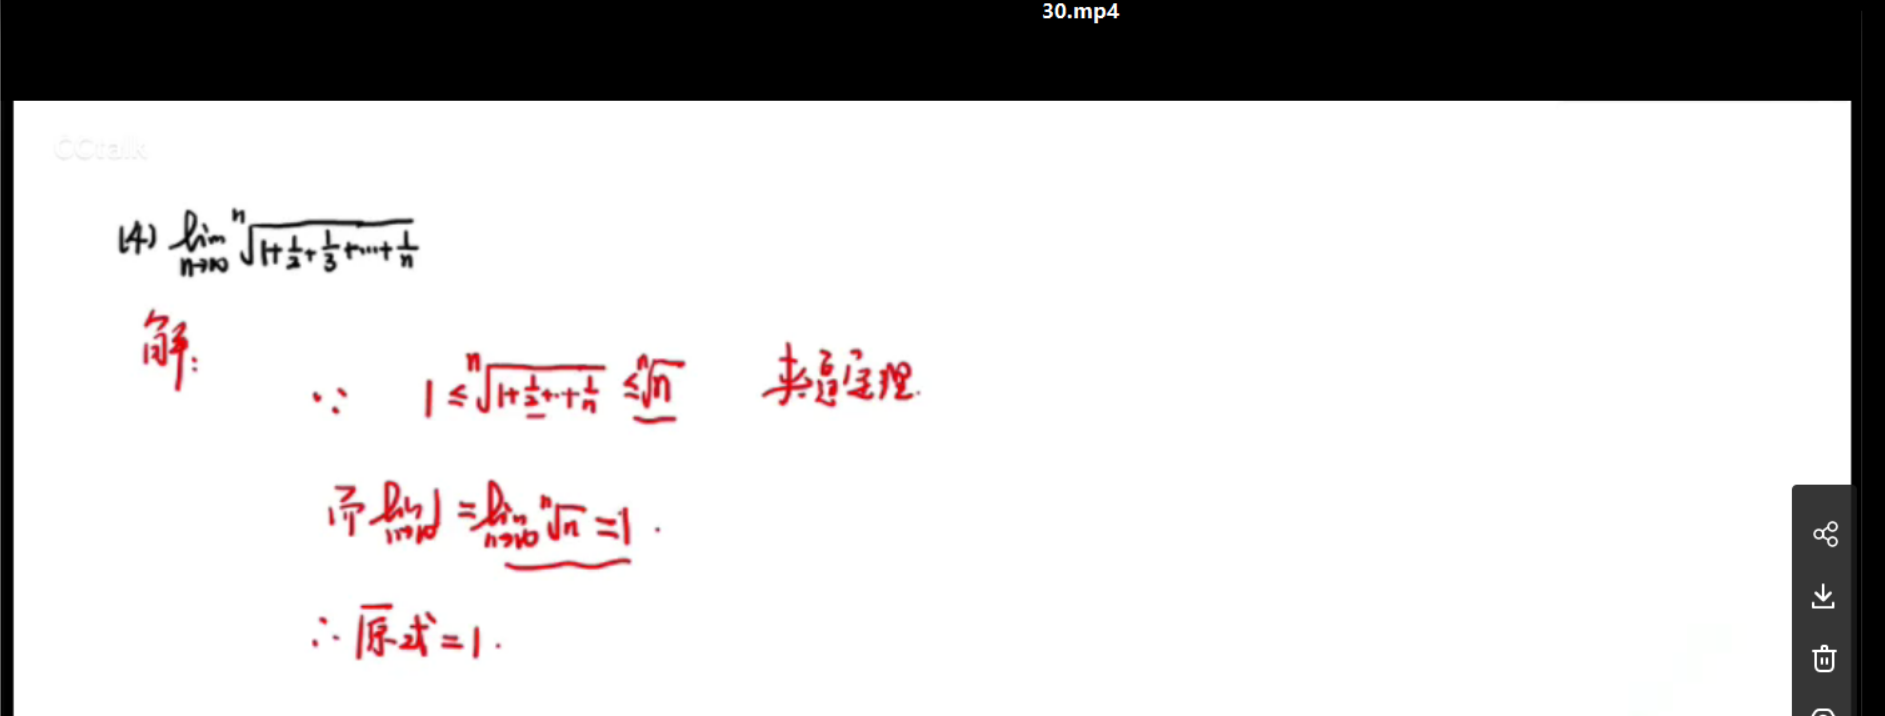 30.mp4
CCtalk
(4) lim n→∞ ⁿ√(1+1/2+1/3+···+1/n)
解:
∵ 1 ≤ ⁿ√(1+1/2+··+1/n) ≤ ⁿ√n 夹逼定理.
而 lim n→∞ 1 = lim n→∞ ⁿ√n = 1.
∴ 原式 = 1.